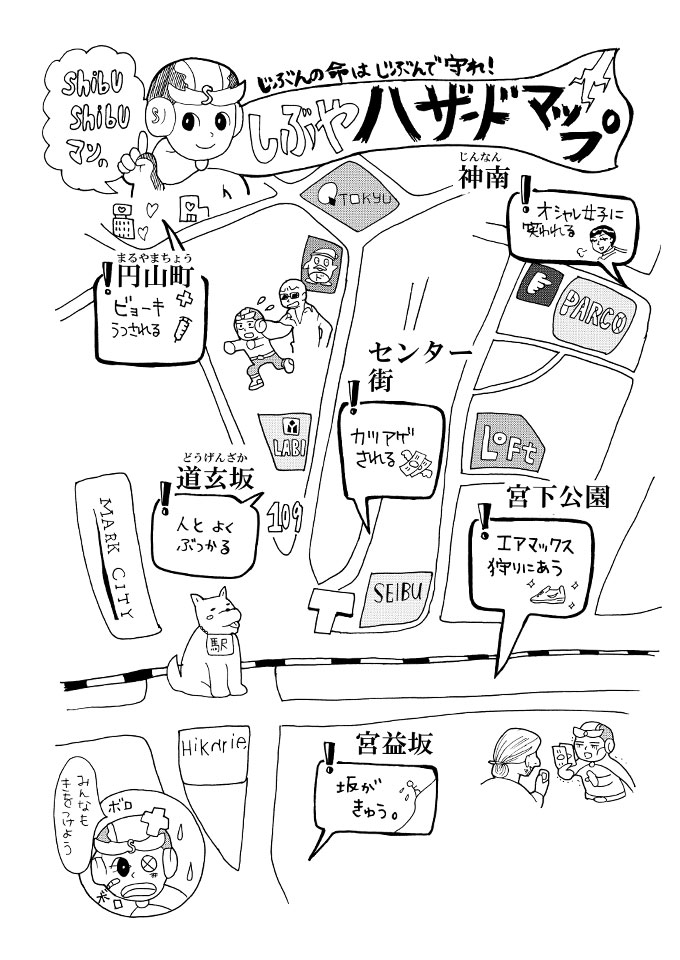 ShibU
ShibU
マンの
S
S
じぶんの命は じぶんで守れ!
しぶや ハザードマップ。
TOKYU
じんなん
神南
! オシャレ女子に
笑われる
まるやまちょう
円山町
! ビョーキ
うつされる
PARCO
センター
街
! カツアゲ
される
LoFt
LABI
どうげんざか
道玄坂
! 人と よく
ぶつかる
109
宮下公園
! エアマックス
狩りにあう
MARK CITY
SEIBU
駅
Hikarie
宮益坂
! 坂が
きゅう。
みんなも
きをつけよう
ボロ
ボロ
S